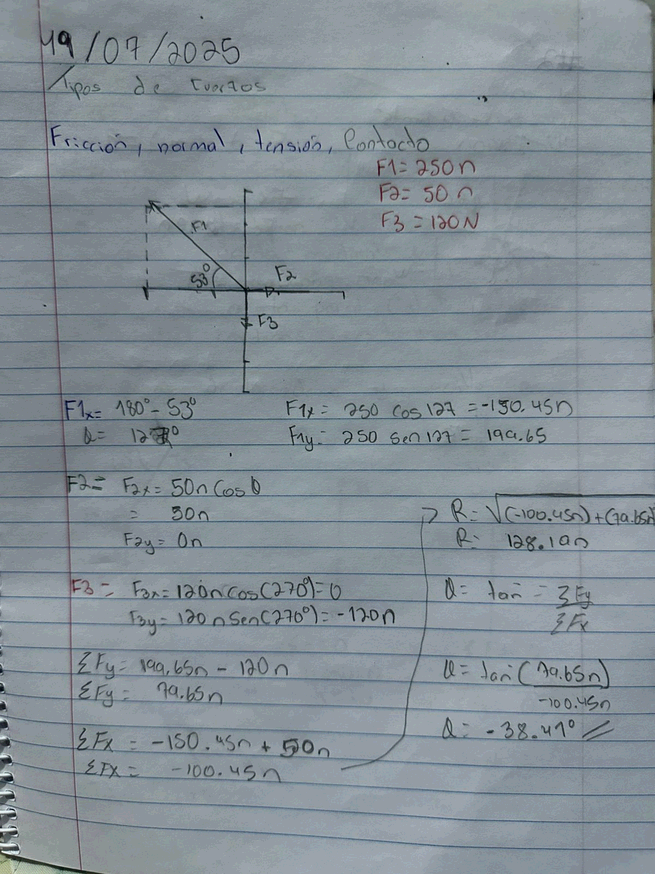 19/07/2025
Tipos de Fuerzas
Fricción, normal, tensión, Contacto
F1= 250n
F2= 50 n
F3 = 120N
F1
53°
F2
F3
F1x= 180° - 53°
θ= 127°
F1x = 250 cos 127 = -150.45n
F1y = 250 sen 127 = 199.65
F2= F2x = 50n Cos 0
= 50n
F2y = 0n
F3= F3x = 120n cos(270°) = 0
F3y = 120 n Sen(270°) = -120n
ΣFy = 199.65n - 120n
ΣFy = 79.65n
ΣFx = -150.45n + 50n
ΣFx = -100.45n
R= √(-100.45n)+(79.65n
R= 128.19n
θ= tan⁻ = ΣFy/ΣFx
θ= tan⁻ (79.65n/-100.45n)
θ= -38.41°